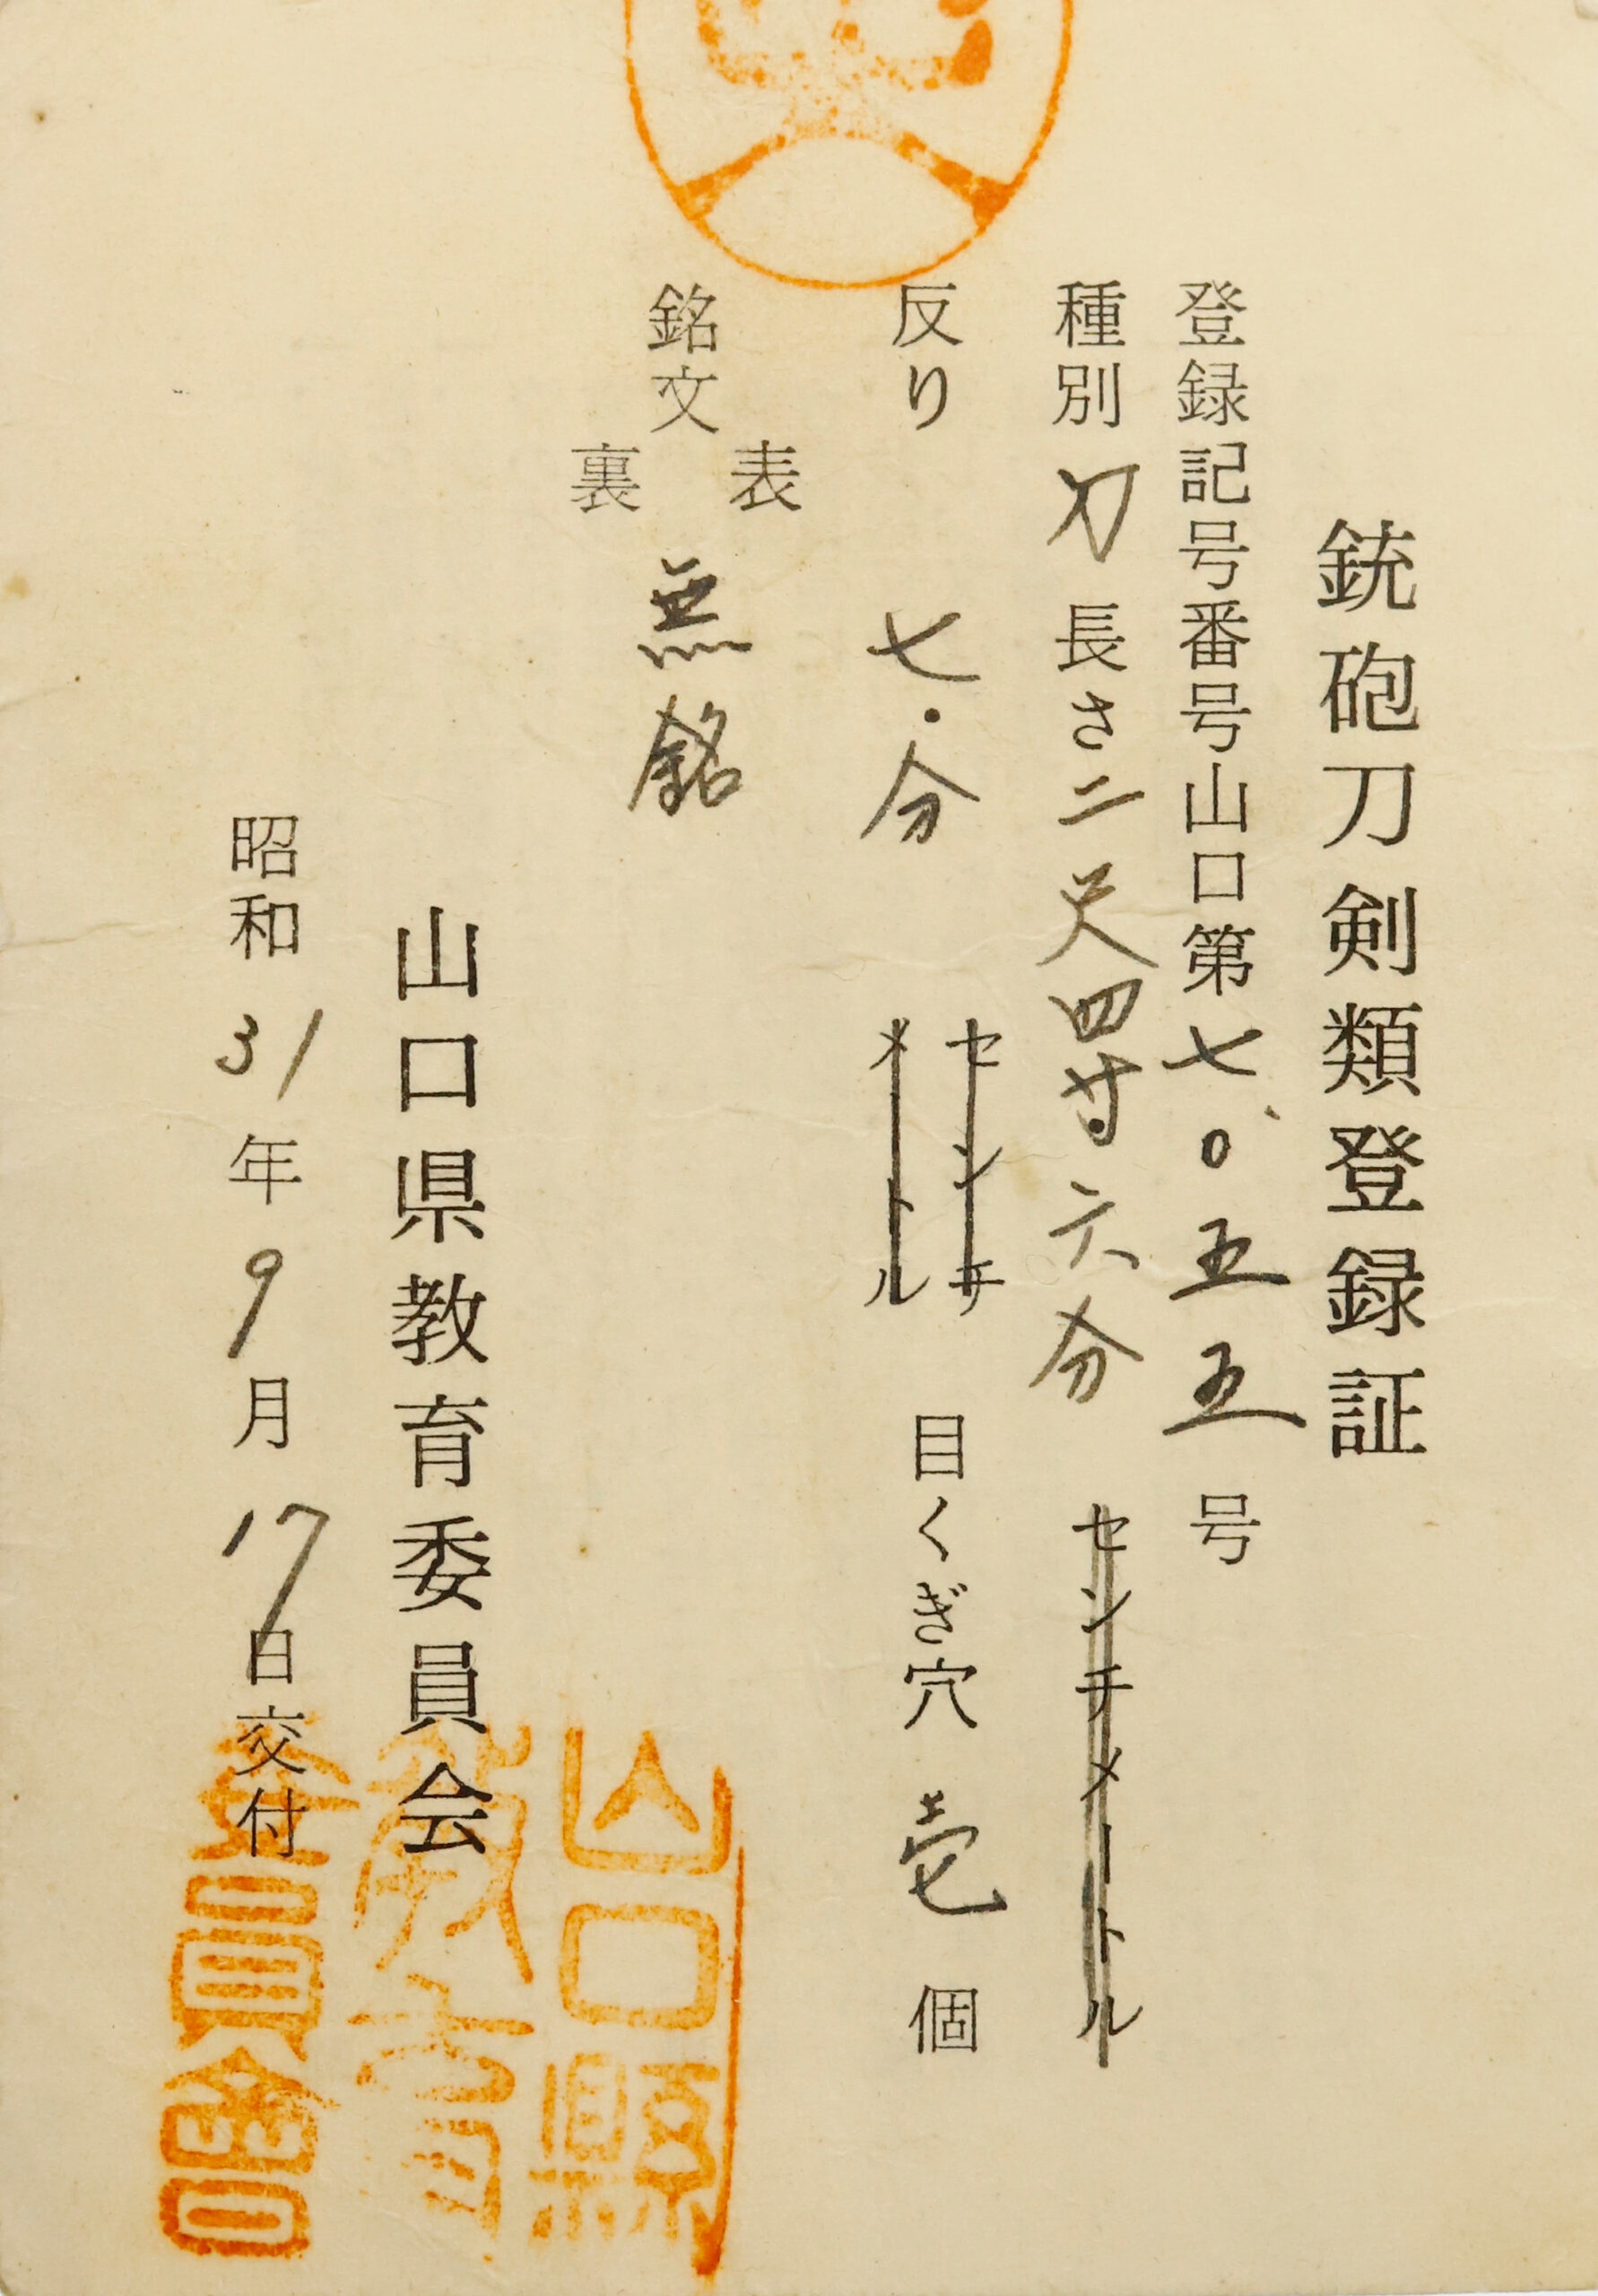 銃砲刀剣類登録証
登録記号番号山口第七〇五五号
種別 刀 長さ 二尺四寸六分 センチメートル
反り 七分 センチメートル 目くぎ穴 壱 個
銘文 表 裏 無銘
山口県教育委員会
昭和31年9月17日交付
山口縣
教育
委員會